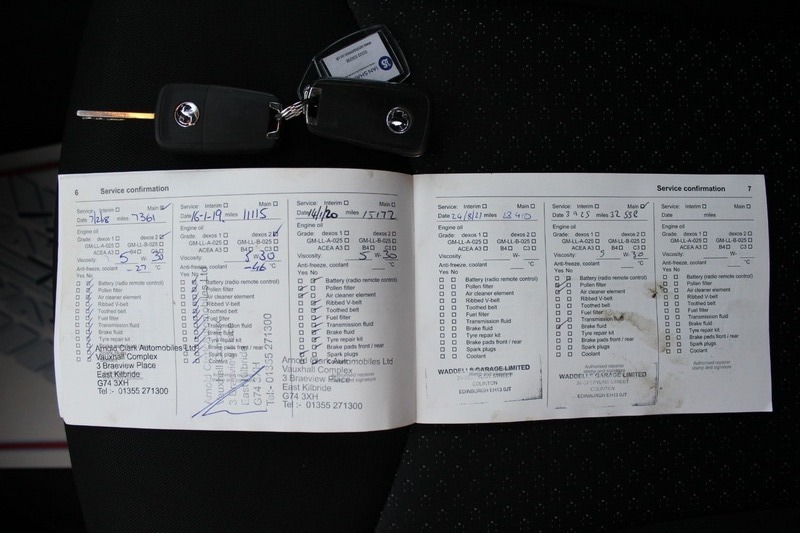 IAN SH
6 Service confirmation
Service: Interim Main
Date 7/2/18 miles 7361
Engine oil
Grade: dexos 1 dexos 2
GM-LL-A-025 GM-LL-B-025
ACEA A3
Viscosity: 5 W- 30
Anti-freeze, coolant -27 °C
Yes No
Battery (radio remote control)
Pollen filter
Air cleaner element
Ribbed V-belt
Toothed belt
Fuel filter
Transmission fluid
Brake fluid
Tyre repair kit
Brake pads front / rear
Arnold Clark Automobiles Ltd
Vauxhall Complex
3 Braeview Place
East Kilbride
G74 3XH
Tel :- 01355 271300
Service: Interim Main
Date 16-1-19 miles 11115
Engine oil
Grade: dexos 1 dexos 2
GM-LL-A-025 GM-LL-B-025
ACEA A3 B4 C3
Viscosity: 5 W 30
Anti-freeze, coolant -46 °C
Yes No
Battery (radio remote control)
Pollen filter
Air cleaner element
Ribbed V-belt
Toothed belt
Fuel filter
Transmission fluid
Brake fluid
Tyre repair kit
Brake pads front / rear
Spark plugs
Coolant
3 Braeview Place
East Kilbride
G74 3XH
Tel:- 01355 271300
Service: Interim Main
Date 14/1/20 miles 15172
Engine oil
Grade: dexos 1 dexos 2
GM-LL-A-025 GM-LL-B-025
ACEA A3 B4 C3
Viscosity: 5 W- 30
Anti-freeze, coolant °C
Yes No
Battery (radio remote control)
Pollen filter
Air cleaner element
Ribbed V-belt
Toothed belt
Fuel filter
Transmission fluid
Brake fluid
Tyre repair kit
Brake pads front / rear
Spark plugs
Arnold Clark Automobiles Ltd
Vauxhall Complex
3 Braeview Place
East Kilbride
G74 3XH
Tel :- 01355 271300
Service confirmation 7
Service: Interim Main
Date 24/8/21 miles
Engine oil
Grade: dexos 1 dexos 2
GM-LL-A-025 GM-LL-B-025
ACEA A3 B4 C3
Viscosity: W-
Anti-freeze, coolant °C
Yes No
Battery (radio remote control)
Pollen filter
Air cleaner element
Ribbed V-belt
Toothed belt
Fuel filter
Transmission fluid
Brake fluid
Tyre repair kit
Brake pads front / rear
Spark plugs
Coolant
WADDELLS GARAGE LIMITED
COLINTON
EDINBURGH EH13 0JT
Service: Interim Main
Date 3 9 25 miles 32 558
Engine oil
Grade: dexos 1 dexos 2
GM-LL-A-025 GM-LL-B-025
ACEA A3 B4 C3
Viscosity: 5 W- 30
Anti-freeze, coolant °C
Yes No
Battery (radio remote control)
Pollen filter
Air cleaner element
Ribbed V-belt
Toothed belt
Fuel filter
Transmission fluid
Brake fluid
Tyre repair kit
Brake pads front / rear
Spark plugs
Coolant
WADDELLS GARAGE LIMITED
COLINTON
EDINBURGH EH13 0JT
Service: Interim Main
Date miles
Engine oil
Grade: dexos 1 dexos 2
GM-LL-A-025 GM-LL-B-025
ACEA A3 B4 C3
Viscosity: W-
Anti-freeze, coolant °C
Yes No
Battery (radio remote control)
Pollen filter
Air cleaner element
Ribbed V-belt
Toothed belt
Fuel filter
Transmission fluid
Brake fluid
Tyre repair kit
Brake pads front / rear
Spark plugs
Coolant
Authorised repairer
stamp and signature